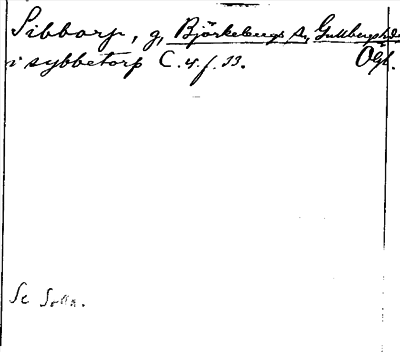 Sibborp, g, Björkebergs sn, Gullbergs hd
i sybbetorp C. 4. f. 33. Ögl.
Se Solla.